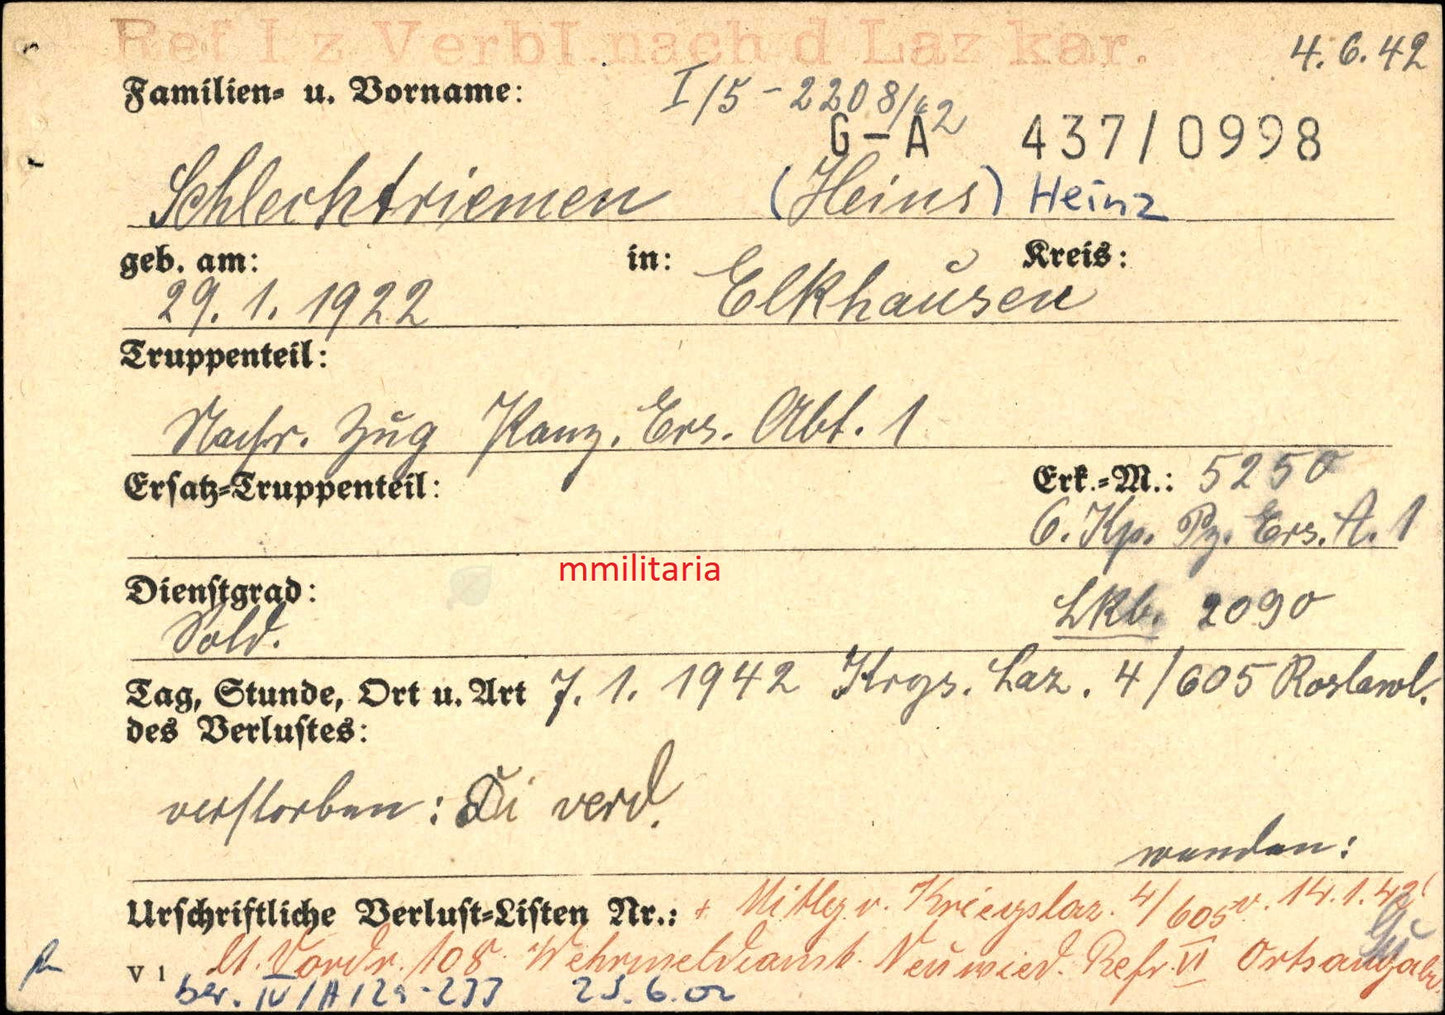 Ref I z Verbl. nach d Laz kar.
4.6.42
Familien- u. Vorname:
I/5 - 2208/42
G-A 437/0998
Schlechtriemen (Heins) Heinz
geb. am: in: Kreis:
29.1.1922 Elkhausen
Truppenteil:
Nachr. Zug Panz. Ers. Abt. 1
Ersatz-Truppenteil: Erk.-M.: 5250
6. Kp. Pz. Ers. A. 1
Dienstgrad: Lkb. 2090
Sold.
Tag, Stunde, Ort u. Art 7.1.1942 Krgs. Laz. 4/605 Roslawl.
des Verlustes:
verstorben: Di verd.
wenden:
Urschriftliche Verlust-Listen Nr.: + Mitlg. v. Kriegslaz. 4/605 v. 14.1.42
V 1 lt. Vordr. 108 Wehrmeldeamt Neuwied. Refr. VI Ortsangabe
ber. IV/A
mmilitaria